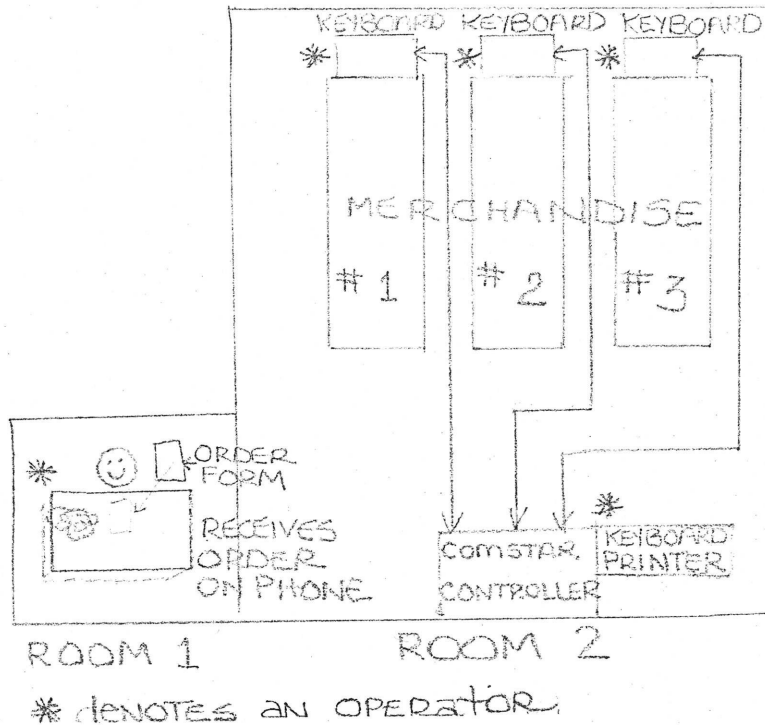 KEYBOARD KEYBOARD KEYBOARD
* * *
MERCHANDISE
#1 #2 #3
* ORDER
FORM
RECEIVES
ORDER
ON PHONE
*
COMSTAR
CONTROLLER
KEYBOARD
PRINTER
ROOM 1 ROOM 2
* dENOTES aN OPERaTOR.